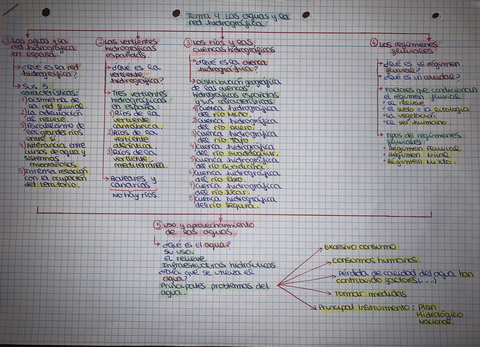 Tema 4 Las aguas y la
red hidrográfica.
① Las aguas y la
red hidrográfica
en España.
→ ¿Qué es la red
hidrográfica?
→ Sus 5
características:
1) Disimetría de
la red fluvial
2) La adecuación
al relieve
3) Paralelismo de
los grandes ríos
entre sí
4) Alternancia entre
cursos de agua y
sistemas
montañosos
5) Intensa relación
con la ocupación
del territorio.
② Las vertientes
hidrográficas
españolas
→ ¿Qué es la
vertiente
hidrográfica?
→ Tres vertientes
hidrográficas
en España:
1) Ríos de la
vertiente
cantábrica.
2) Ríos de la
vertiente
atlántica
3) Ríos de la
vertiente
mediterránea.
→ Baleares y
Canarias
no hay ríos.
③ Los ríos y las
cuencas hidrográficas
→ ¿Qué es la cuenca
hidrográfica?
→ Distribución geográfica
de las cuencas
hidrográficas españolas
y sus características:
1) Cuenca hidrográfica
del río Miño.
2) Cuenca hidrográfica
del río Duero.
3) Cuenca hidrográfica
del río Tajo
4) Cuenca hidrográfica
del río Guadalquivir.
5) Cuenca hidrográfica
del río Guadiana.
6) Cuenca hidrográfica
del río Ebro.
7) Cuenca hidrográfica
del río Júcar.
8) Cuenca hidrográfica
del río Segura.
④ Los regímenes
fluviales
→ ¿Qué es el régimen
fluvial?
→ ¿Qué es un caudal?
→ Factores que condicionan
el régimen fluvial:
El relieve
El suelo o la litología
La vegetación
El ser humano
→ Tipos de regímenes
fluviales:
Régimen Pluvial.
Régimen Nival.
Régimen Mixto.
⑤ Uso y aprovechamiento
de las aguas.
→ ¿Qué es el agua?
Su uso.
El relieve
Infraestructuras hidráulicas.
¿Para qué se utiliza el
agua?
Principales problemas del
agua.
→ Excesivo consumo
→ Consumos humanos
→ Pérdida de calidad del agua han
contribuido factores (...)
→ Tomar medidas
→ Principal instrumento: Plan
Hidrológico
Nacional.